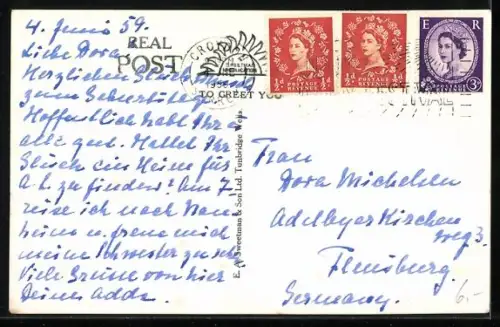 4. Juni 59.
REAL
POST
Liebe Dora
Herzlichen Glückwunsch
zum Geburtstage.
Hoffentlich habt Ihr
alle gut. Hattet Ihr
Glück ein Heim für
A.L. zu finden? Am 7.
reise ich nach Mann
heim u. freue mich
meine Schwester zu
Viele Grüsse von hier
Deine Adda.
CROYDON
TO GREET YOU
POSTAGE
REVENUE
½ d
POSTAGE
REVENUE
½ d
E R
3 D
E. A. Sweetman & Son Ltd. Tunbridge Wells.
Frau
Dora Michelsen
Adelbyer Kirchen
weg 3.
Flensburg.
Germany.
6.-